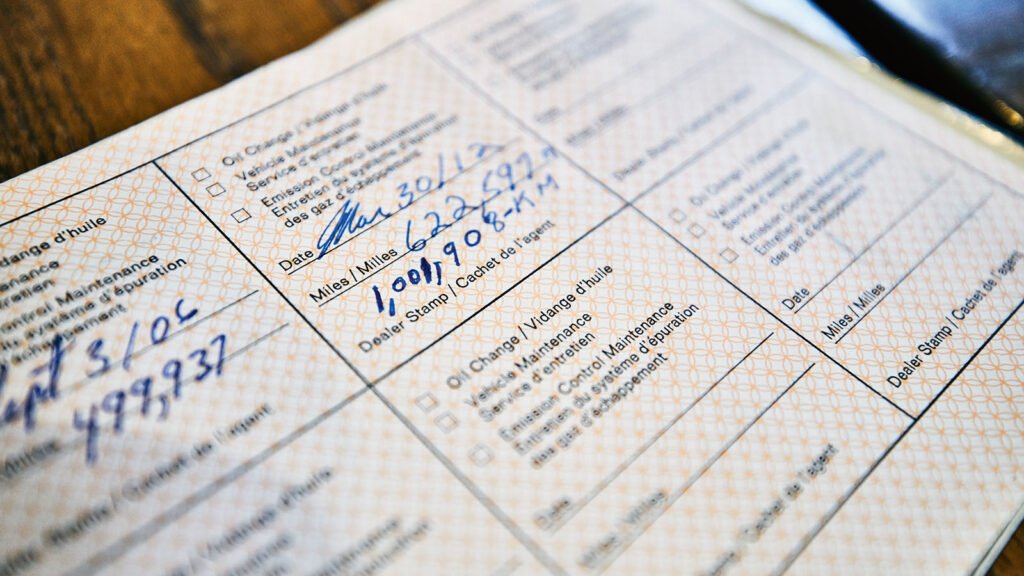 Oil Change / Vidange d'huile
Vehicle Maintenance
Service d'entretien
Emission Control Maintenance
Entretien du système d'épuration
des gaz d'échappement
Date Mar 30/12
Miles / Milles 622,597 m
1,001,908-KM
Dealer Stamp / Cachet de l'agent
d'huile
Maintenance
système d'épuration
3/06
499,937
Cachet de l'agent
Oil Change / Vidange d'huile
Vehicle Maintenance
Service d'entretien
Emission Control Maintenance
Entretien du système d'épuration
des gaz d'échappement
Date
Miles / Milles
Cachet de l'agent
Oil Change / Vidange d'huile
Vehicle Maintenance
Service d'entretien
Emission Control Maintenance
Entretien du système d'épuration
des gaz d'échappement
Date
Miles / Milles
Dealer Stamp / Cachet de l'agent